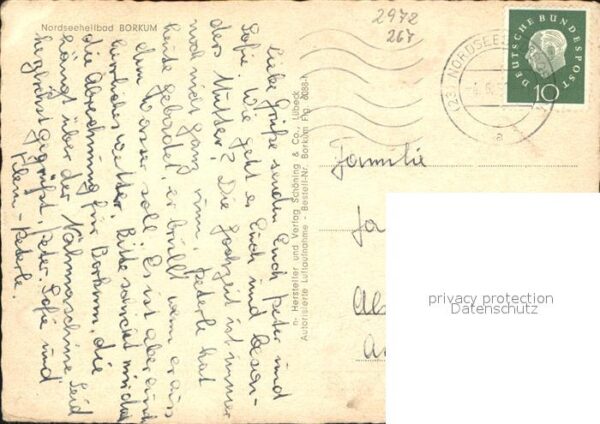 Nordseeheilbad BORKUM
2972
267
DEUTSCHE BUNDESPOST
10
(23) NORDSEE
a
Liebe Grüße senden Euch Peter und
Sofie. Wie geht es Euch und beson-
ders Mutter? Die Hochzeit ist immer
noch nicht ganz rum. Peterle hat
heute gebadet, er brüllt wenn er aus
dem Wasser soll. Es ist aber auch
herrliches Wetter. Bitte sendet mir doch
die Abrechnung für Borkum, die
hängt über der Nähmaschine. Seid
herzlichst gegrüßt, Peter, Sofie und
Klein-Peterle.
n- Hersteller und Verlag Schöning & Co., Lübeck
Autorisierte Luftaufnahme - Bestell-Nr. Borkum Flg.
Familie
privacy protection
Datenschutz